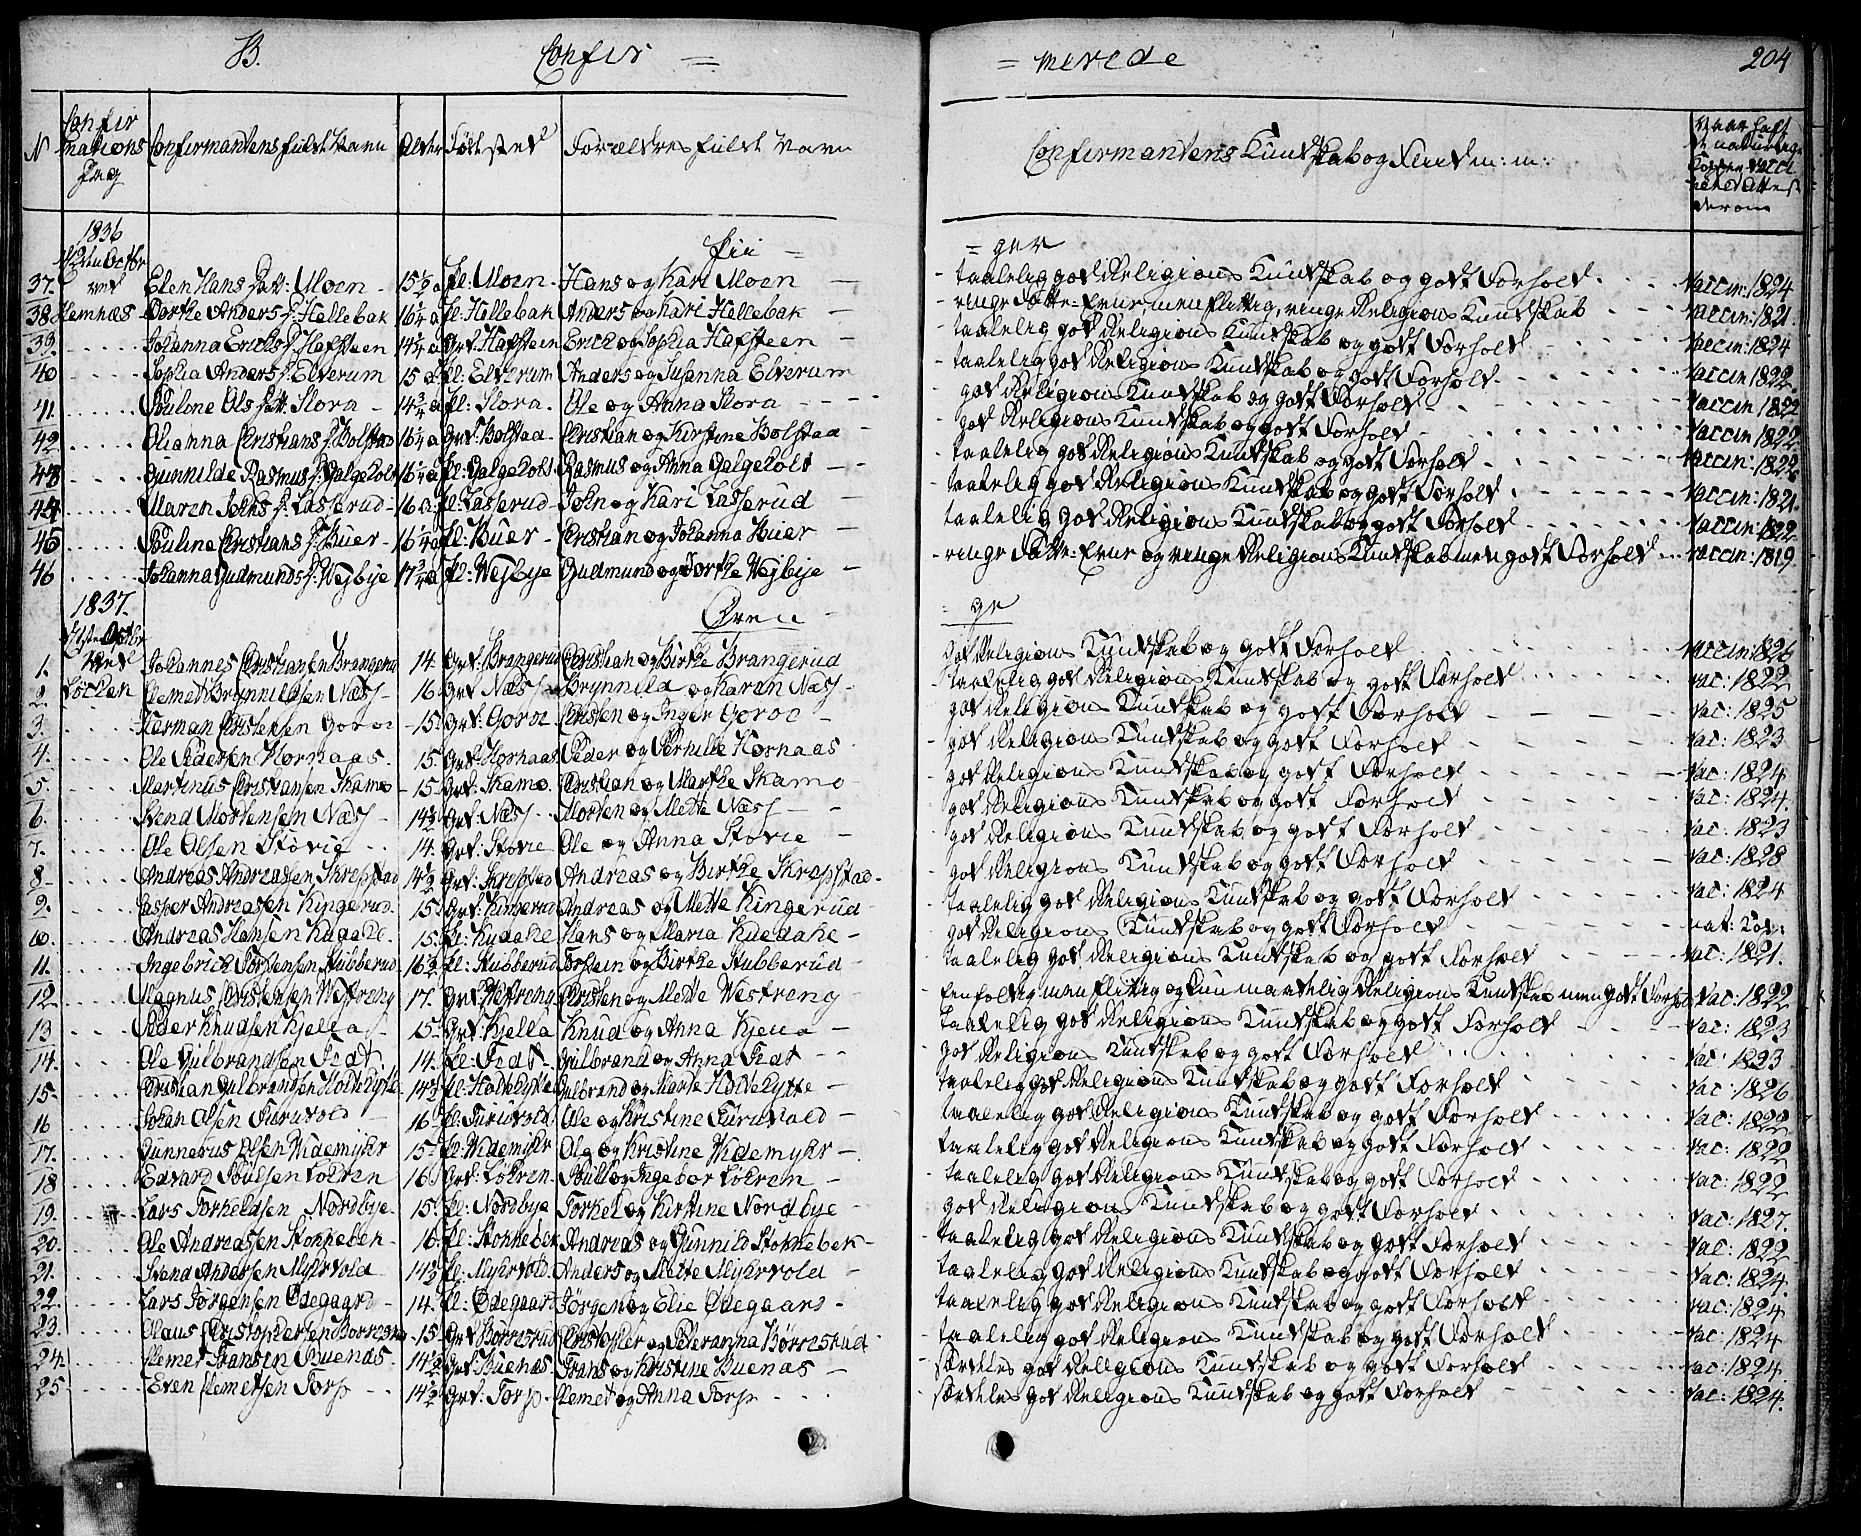 B. Confir = = merede 204
N Confirmations Dag Confirmantens fulde Navn Alder Fødested Forældres fulde Navn Confirmantens Kundskab og Flid m: m: 
1836 Pii = = ger
37. Elen Hans Datt: Moen - 15 1/2 a Pl: Moen - Hans og Kari Moen - taalelig god Religions Kundskab og godt Forhold Vaccin: 1824
38. Hemnæs Dorthe Anders D: Hallebak 16 1/4 a Pl: Hallebak Anders og Kari Hallebak - ringe Fatte=Evne, men flittig, ringe Religions Kundskab Vaccin: 1821.
39. Johanna Erichs D: Hafsteen 14 3/4 a Grd: Hafsteen Erich og Sophia Hafsteen - taalelig god Religions Kundskab og godt Forhold Vaccin: 1824
40 Sophia Anders D: Elverum 15 a Pl: Elverum Anders og Susanna Elverum taalelig god Religions Kundskab og godt Forhold Vaccin 1822.
41. Pouline Ols Datt: Slora - 14 3/4 a Pl: Slora. Ole og Anna Slora - god Religions Kundskab og godt Forhold Vaccin 1822
42 Olianna Christians D: Bolstad 16 1/4 a Grd: Bolstad - Christian og Kirstine Bolstad - god Religions Kundskab og godt Forhold Vaccin 1822
43 Gunnilde Rasmus D: Galgeholt 16 1/4 a Pl: Galgeholt Rasmus og Anna Galgeholt - taalelig god Religions Kundskab og godt Forhold Vaccin: 1822
44. Maren Johns D: Lasserud - 16 a. Pl: Lasserud - John og Kari Lasserud - taalelig god Religions Kundskab og godt Forhold Vaccin: 1821.
45 Pouline Christians D: Buer - 16 1/4 a Pl: Buer - Christian og Johanna Buer taalelig god Religions Kundskab og godt Forhold Vaccin: 1822
46 Johanna Gudmunds D: Vejbye 17 3/4 a Pl: Vejbye Gudmund og Dorthe Vejbye - ringe Fatte=Evne og ringe Religions Kundskab men godt Forhold Vaccin: 1819.
1837. Dren = = ge
1. Johannes Christiansen Brangerud 14. Grd: Brangerud Christian og Birthe Brangerud god Religions Kundskab og godt Forhold Vaccin: 1826
2. Clemet Brynnildsen Næss - 16 Grd Næss Brynnild og Karen Næss - taalelig god Religions Kundskab og godt Forhold vac: 1822
3. Herman Christensen Goroe - 15. Grd: Goroe Christen og Inger Goroe - god Religions Kundskab og godt Forhold vac: 1825
4. Ole Pedersen Hornaas - 15 Grd: Hornaas Peder og Pernille Hornaas god Religions Kundskab og godt Forhold vac: 1823
5. Martinus Christiansen Skamo - 15. Grd: Skamo. Christian og Marthe Skamo god Religions Kundskab og godt Forhold vac: 1824
6. Svend Mortensen Næss - 14 1/2 Grd: Næss - Morten og Mette Næss - god Religions Kundskab og godt Forhold vac: 1824.
7. Ole Olsen Stovie 14. Grd: Stovie Ole og Anna Stovie - god Religions Kundskab og godt Forhold vac: 1823
8 Andreas Andreassen Skrepstad 14 1/2 Grd: Skrepstad Andreas og Birthe Skrepstad - god Religions Kundskab og godt Forhold vac: 1828
9. Casper Andreassen Kingerud. 15 Grd: Kingerud Andreas og Mette Kingerud - taalelig god Religions Kundskab og godt Forhold vac: 1824
10. Andreas Hansen 15. Hans og Maria god Religions Kundskab og godt Forhold nat: Kop:
11. Ingebrich Torstensen Stubberud 16 1/2 Pl: Stubberud Torstein og Birthe Stubberud - taalelig god Religions Kundskab og godt Forhold vac: 1821.
12. Magnus Christensen Westreng 17. Grd: Westreng Christen og Mette Westreng Eenfoldig men flittig og kun maatelig Religions Kundskab men godt Forhold Vac: 1822
13 Peder Knudsen Kjella 15 Grd: Kjella Knud og Anna Kjella - taalelig god Religions Kundskab og godt Forhold vac: 1823
14. Ole Gulbrandsen 14. Gulbrand og Anna god Religions Kundskab og godt Forhold vac: 1823
15. Christian Gulbrandsen Holtehytte 14 1/2 Pl: Holtehytte Gulbrand og Marte Holtehytte - taalelig god Religions Kundskab og godt Forhold vac: 1826
16 Johan Olsen Furuvold 16 Pl: Furuvold Ole og Kristine Furuvold - taalelig god Religions Kundskab og godt Forhold vac: 1822
17. Gunnerus Olsen Widemyhr 15 Pl: Widemyhr Ole og Kristine Widemyhr - taalelig god Religions Kundskab og godt Forhold vac: 1822
18 Edvard Poulsen Løkren 16 Grd: Løkren Poul og Ingebor Løkren - taalelig god Religions Kundskab og godt Forhold vac: 1822
19. Lars Torkeldsen Nordbye 15. Pl: Nordbye Torkel og Kirstine Nordbye - god Religions Kundskab og godt Forhold vac: 1827.
20. Ole Andreassen Stokkebek - 16. Pl: Stokkebek Andreas og Gunnild Stokkebek - taalelig god Religions Kundskab og godt Forhold vac: 1822
21. Svend Andersen Myhrvold 14 1/2 Pl: Myhrvold. Anders og Mette Myhrvold - taalelig god Religions Kundskab og godt Forhold vac: 1824.
22. Lars Jørgensen Ødegaard 14. Pl: Ødegaard Jørgen og Elie Ødegaard - taalelig god Religions Kundskab og godt Forhold vac: 1824.
23. Olaus Christophersen Børresrud - 15 Grd Børresrud Christopher og Pederanna Børresrud - taalelig god Religions Kundskab og godt Forhold vac: 1824
24. Clemet Fransen Buenæs. 14 1/2 Grd: Buenæs. Frans og Kristine Buenæs - særdeles god Religions Kundskab og godt Forhold vac: 1824.
25 Even Clemetsen Torp 14 1/2 Grd: Torp Clemet og Anna Torp særdeles god Religions Kundskab og godt Forhold vac: 1824.